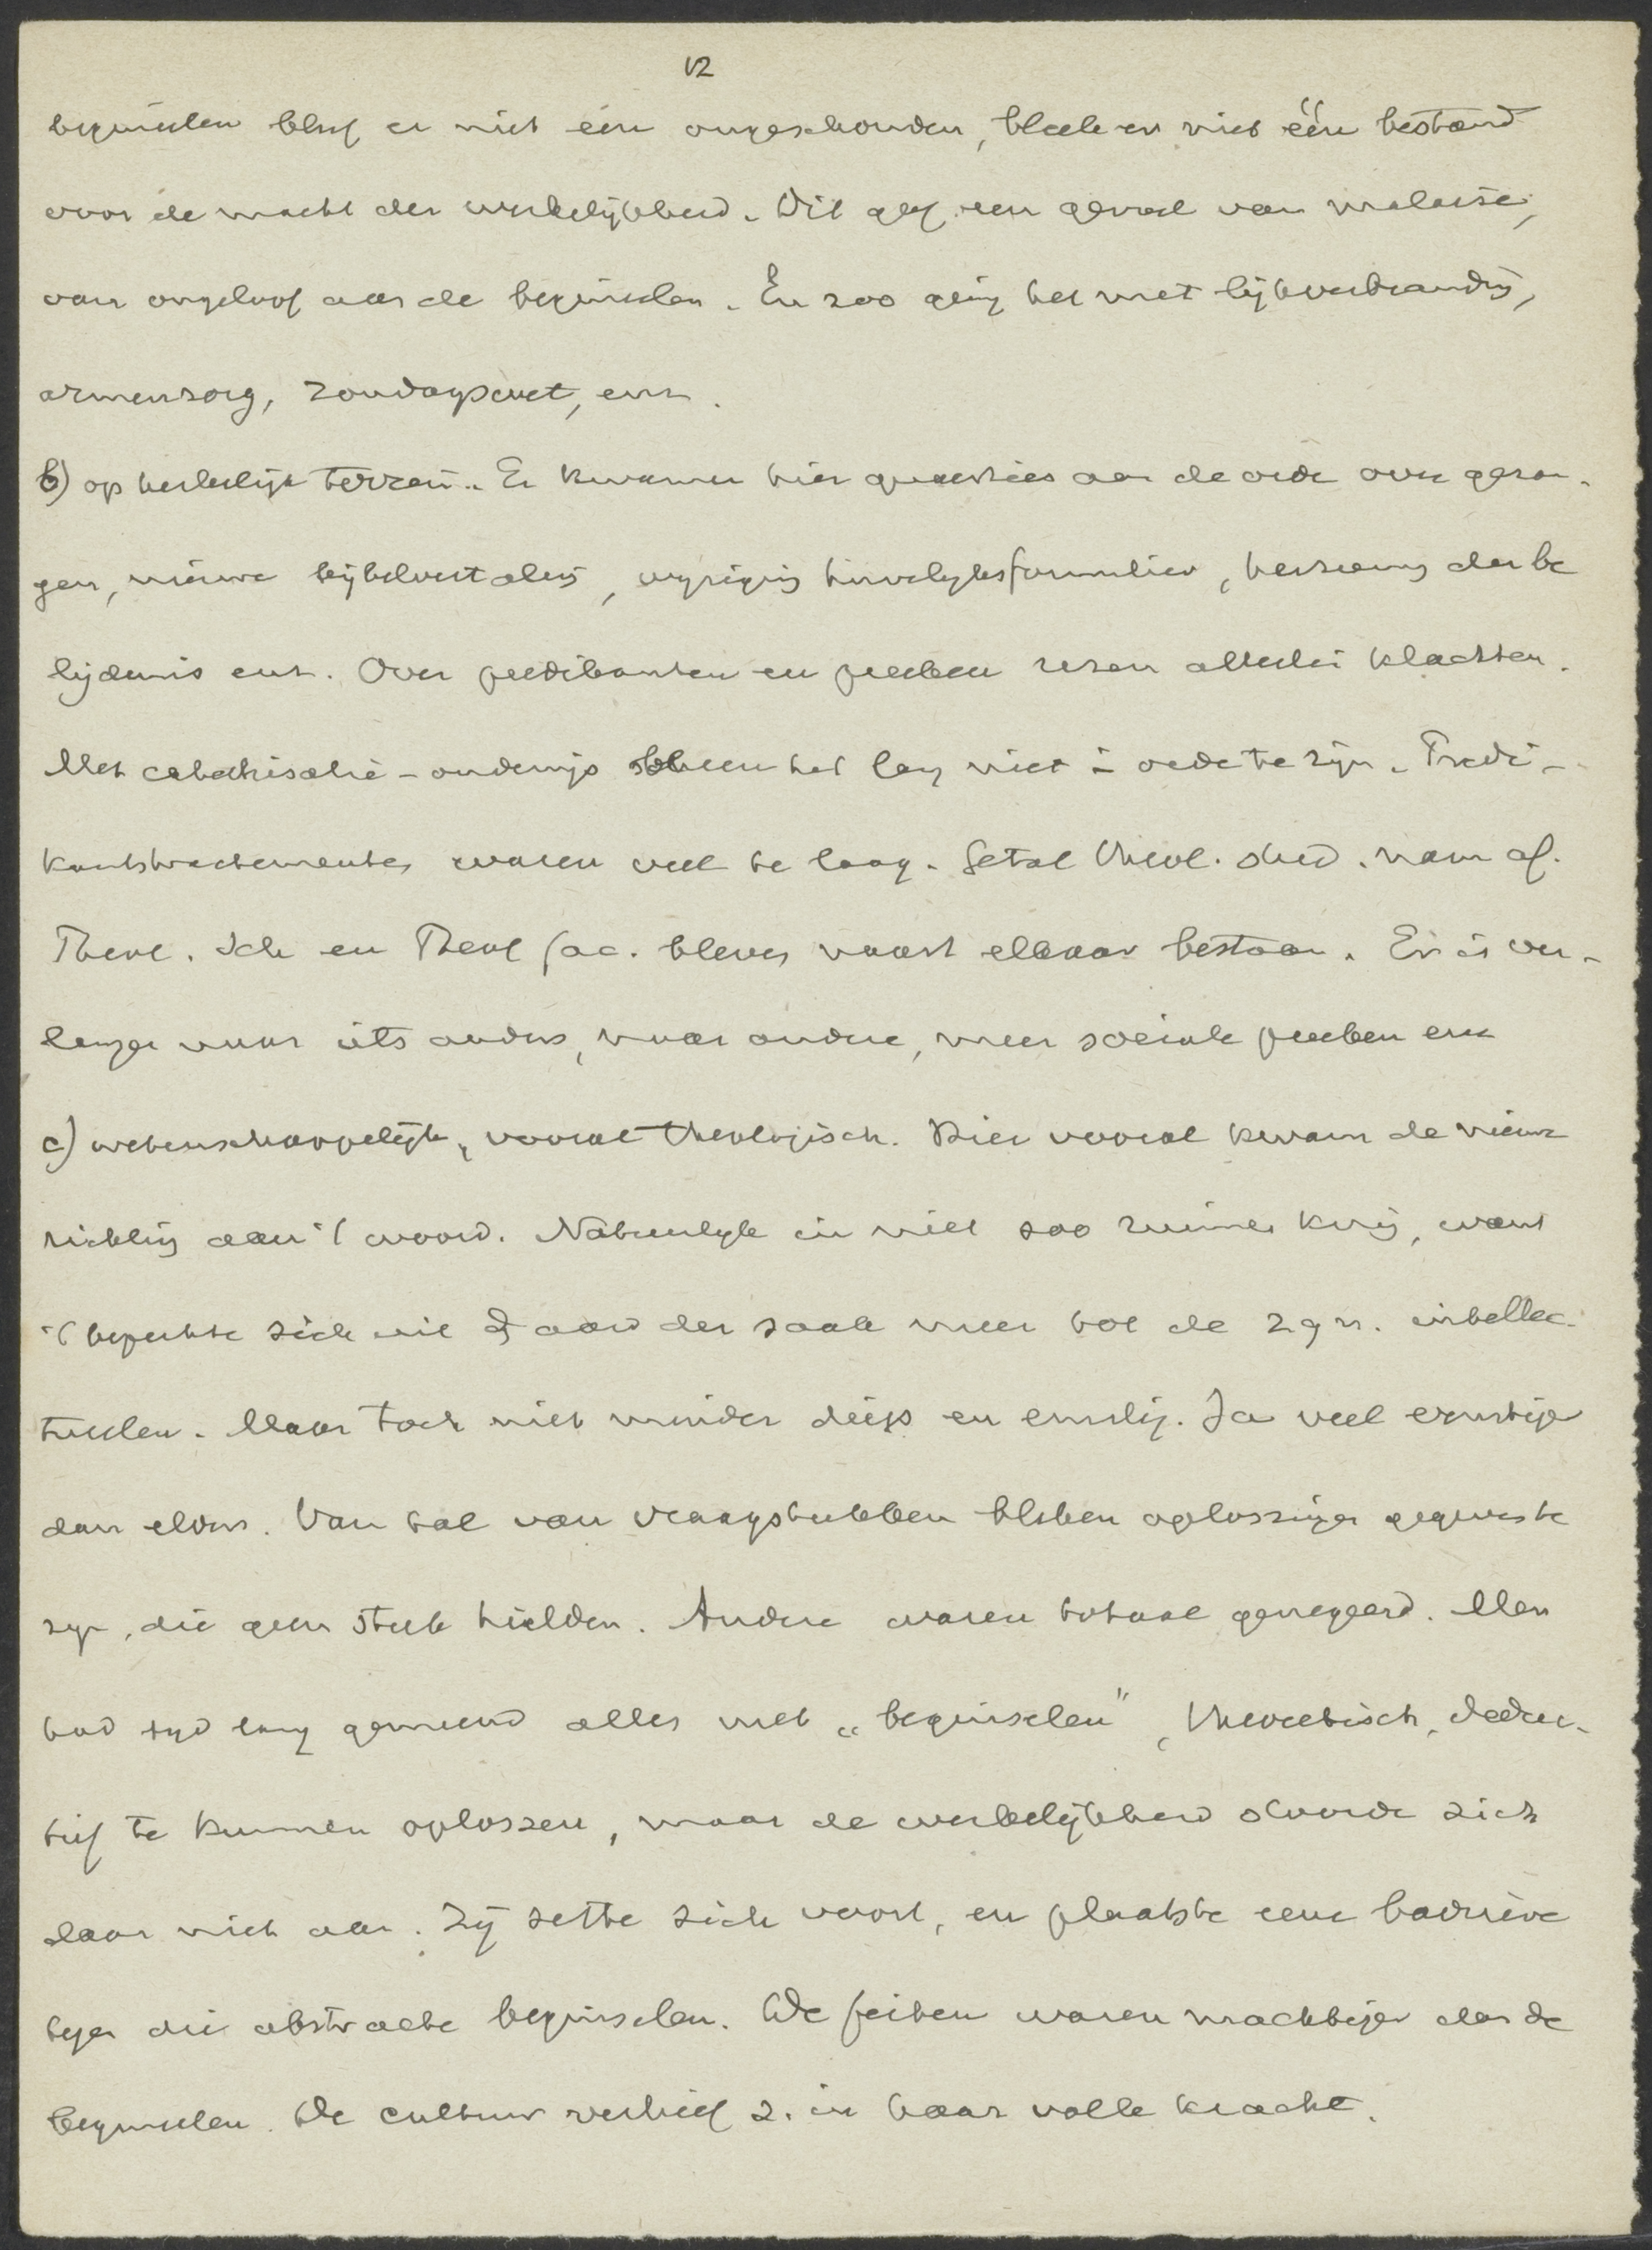 12
beginselen bleef er niet één ongeschonden, bleek er niet één bestand
voor de macht der werkelijkheid. Dit gaf een gevoel van malaise,
van ongeloof aan de beginselen. En zoo ging het met lijkverbranding,
armenzorg, Zondagswet, enz.
b) op kerkelijk terrein. Er kwamen hier quaesties aan de orde over gezan-
gen, nieuwe bijbelvertaling, wijziging huwelijksformulier, herziening der be
lijdenis enz. Over predikanten en preeken rezen allerlei klachten.
Met catechisatie-onderwijs scheen het lang niet in orde te zijn. Predi-
kantstractementen waren veel te laag. Getal theol. stud. nam af.
Theol. Sch en Theol fac. bleven naast elkaar bestaan. Er is ver-
langen naar iets anders, naar andere, meer sociale preeken enz
c) wetenschappelijk, vooral theologisch. Hier vooral kwam de nieuwe
richting aan 't woord. Natuurlijk in niet zoo ruimen kring, want
't beperkte zich uit d aard der zaak meer tot de zgn. intellec-
tueelen. Maar toch niet minder diep en ernstig. Ja veel ernstiger
dan elders. Van tal van vraagstukken bleken oplossingen gegeven te
zijn, die geen steek hielden. Andere waren totaal genegeerd. Men
had tijd lang gemeend alles met „beginselen", theoretisch, deduc-
tief te kunnen oplossen, maar de werkelijkheid stoorde zich
daar niet aan. Zij zette zich voort, en plaatste eene barrière
tegen die abstracte beginselen. De feiten waren machtiger dan de
beginselen. De cultuur verhief z. in haar volle kracht.